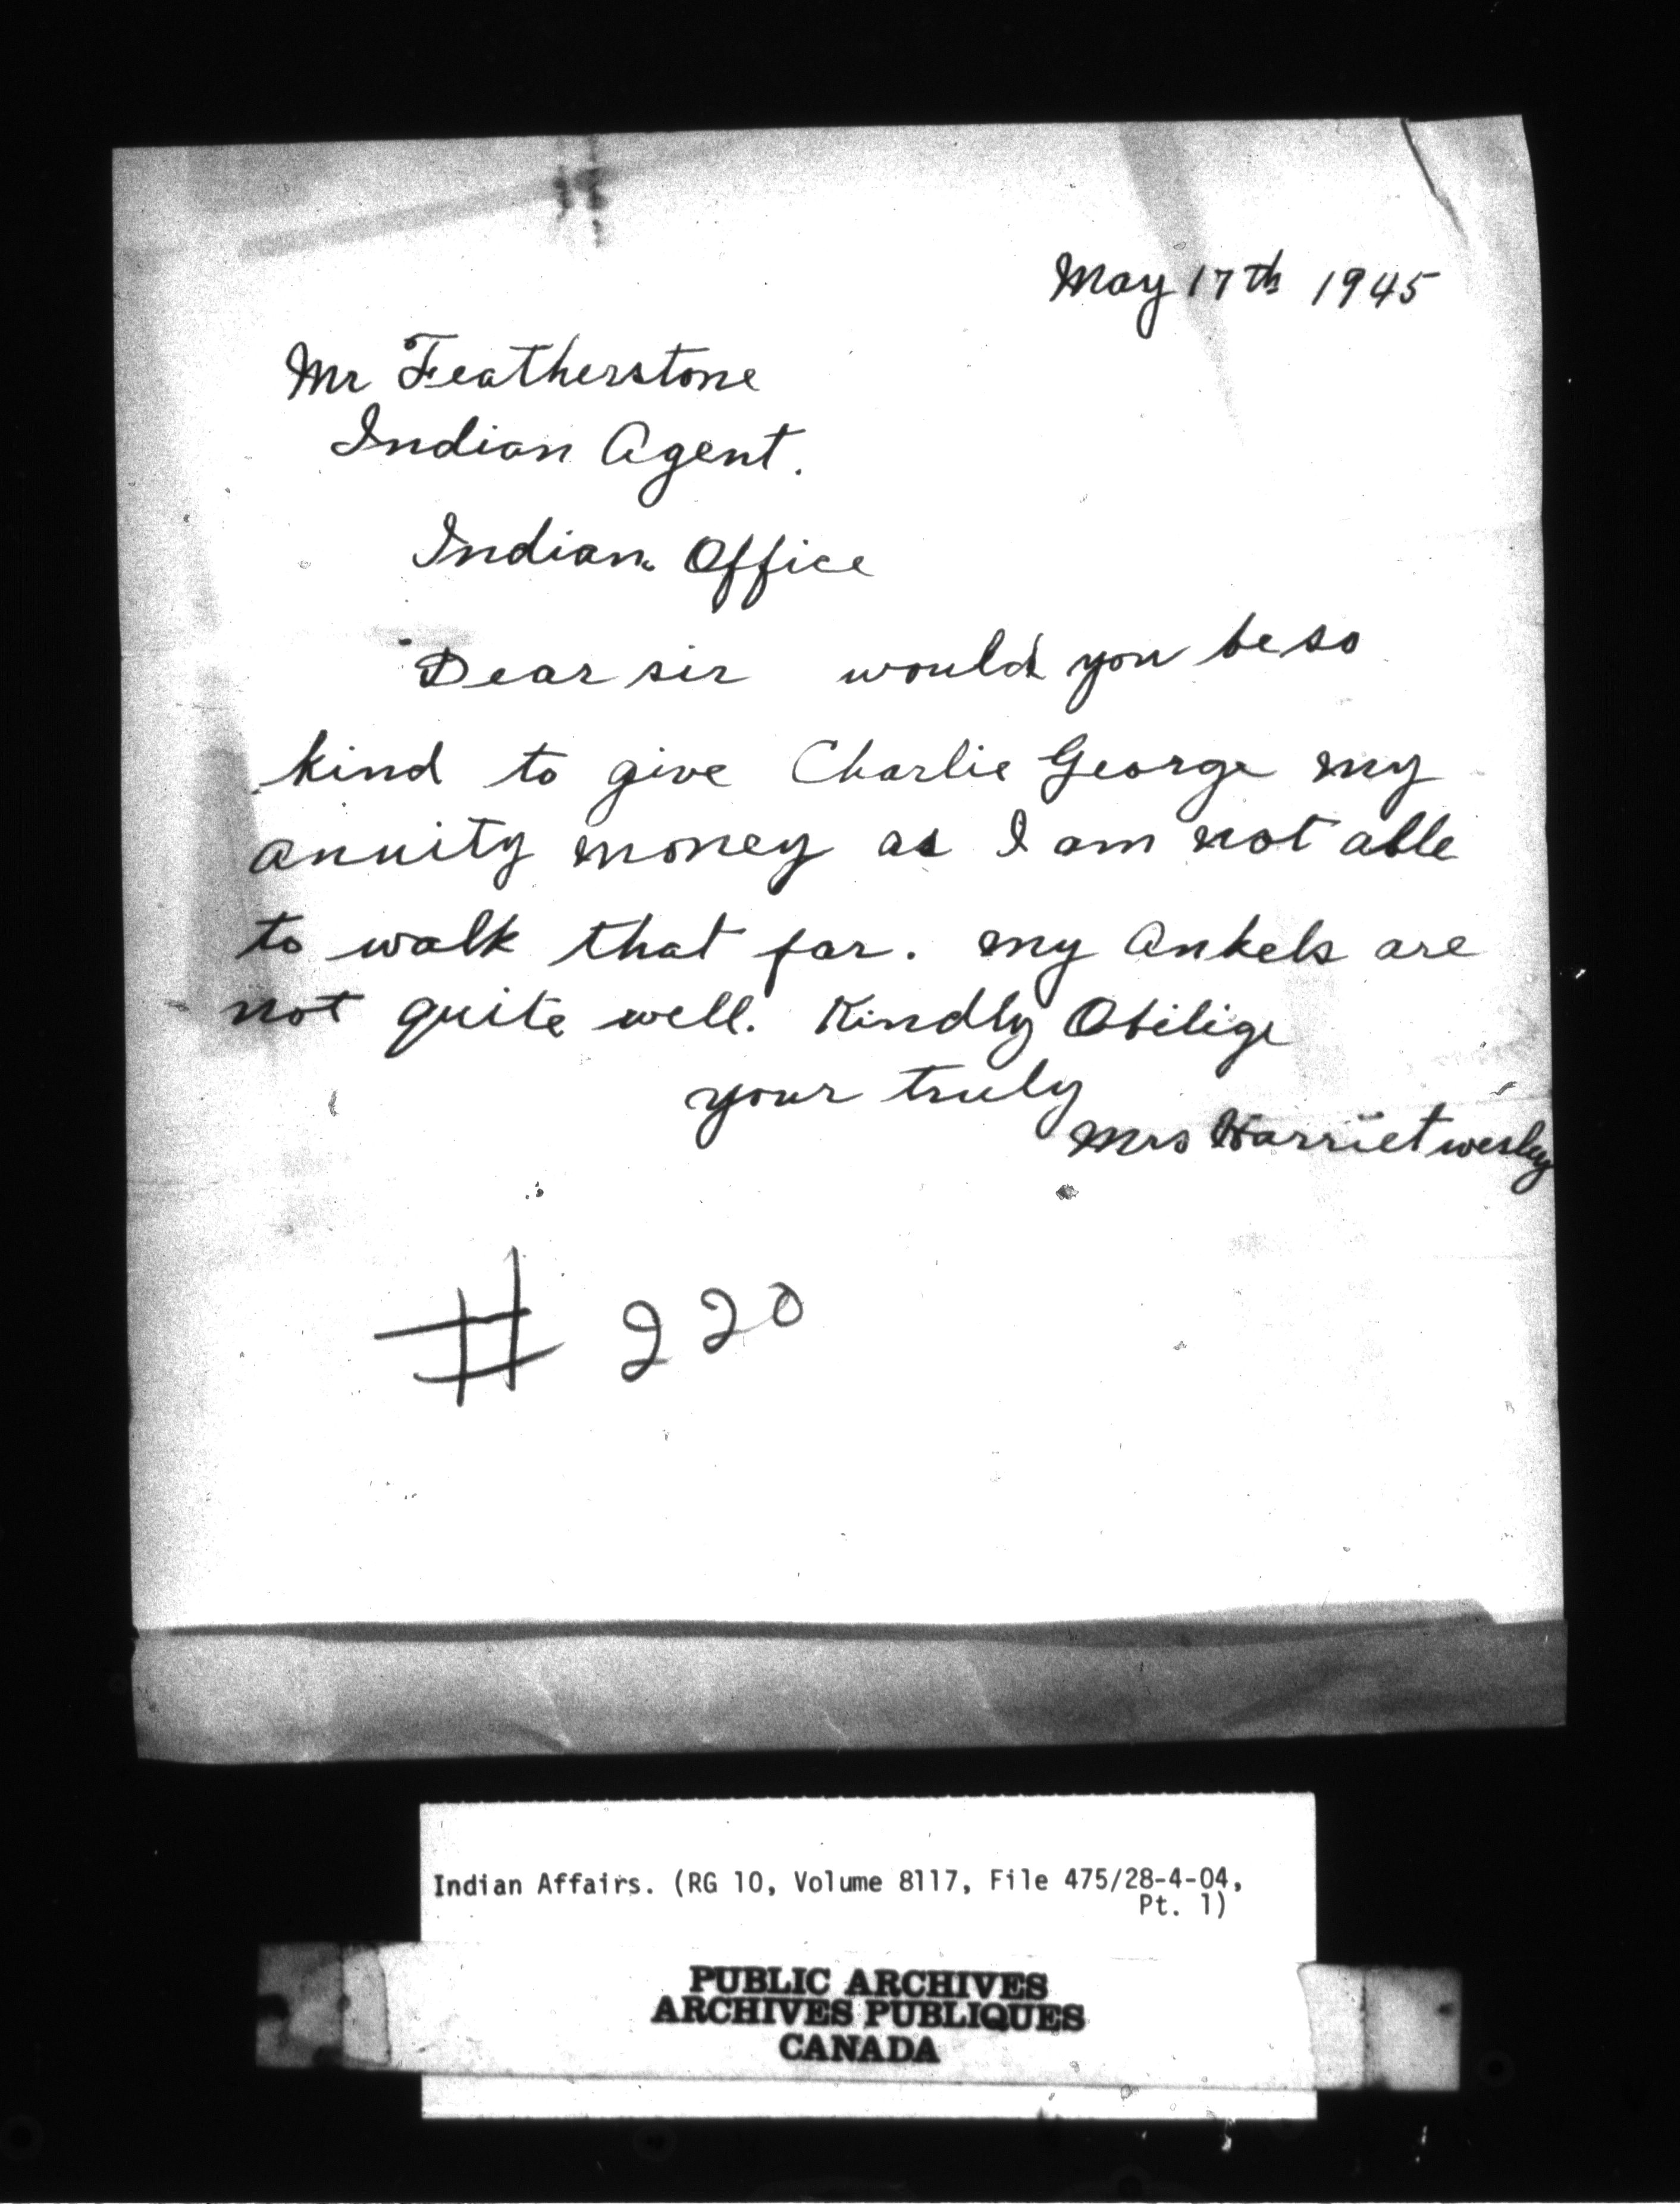 May 17th 1945
Mr Featherstone
Indian Agent.
Indian Office
Dear sir would you be so
kind to give Charlie George my
anuity money as I am not able
to walk that far. my Ankels are
not quite well. Kindly Obilige
your truly
Mrs Harriet wesley
# 220
Indian Affairs. (RG 10, Volume 8117, File 475/28-4-04,
Pt. 1)
PUBLIC ARCHIVES
ARCHIVES PUBLIQUES
CANADA